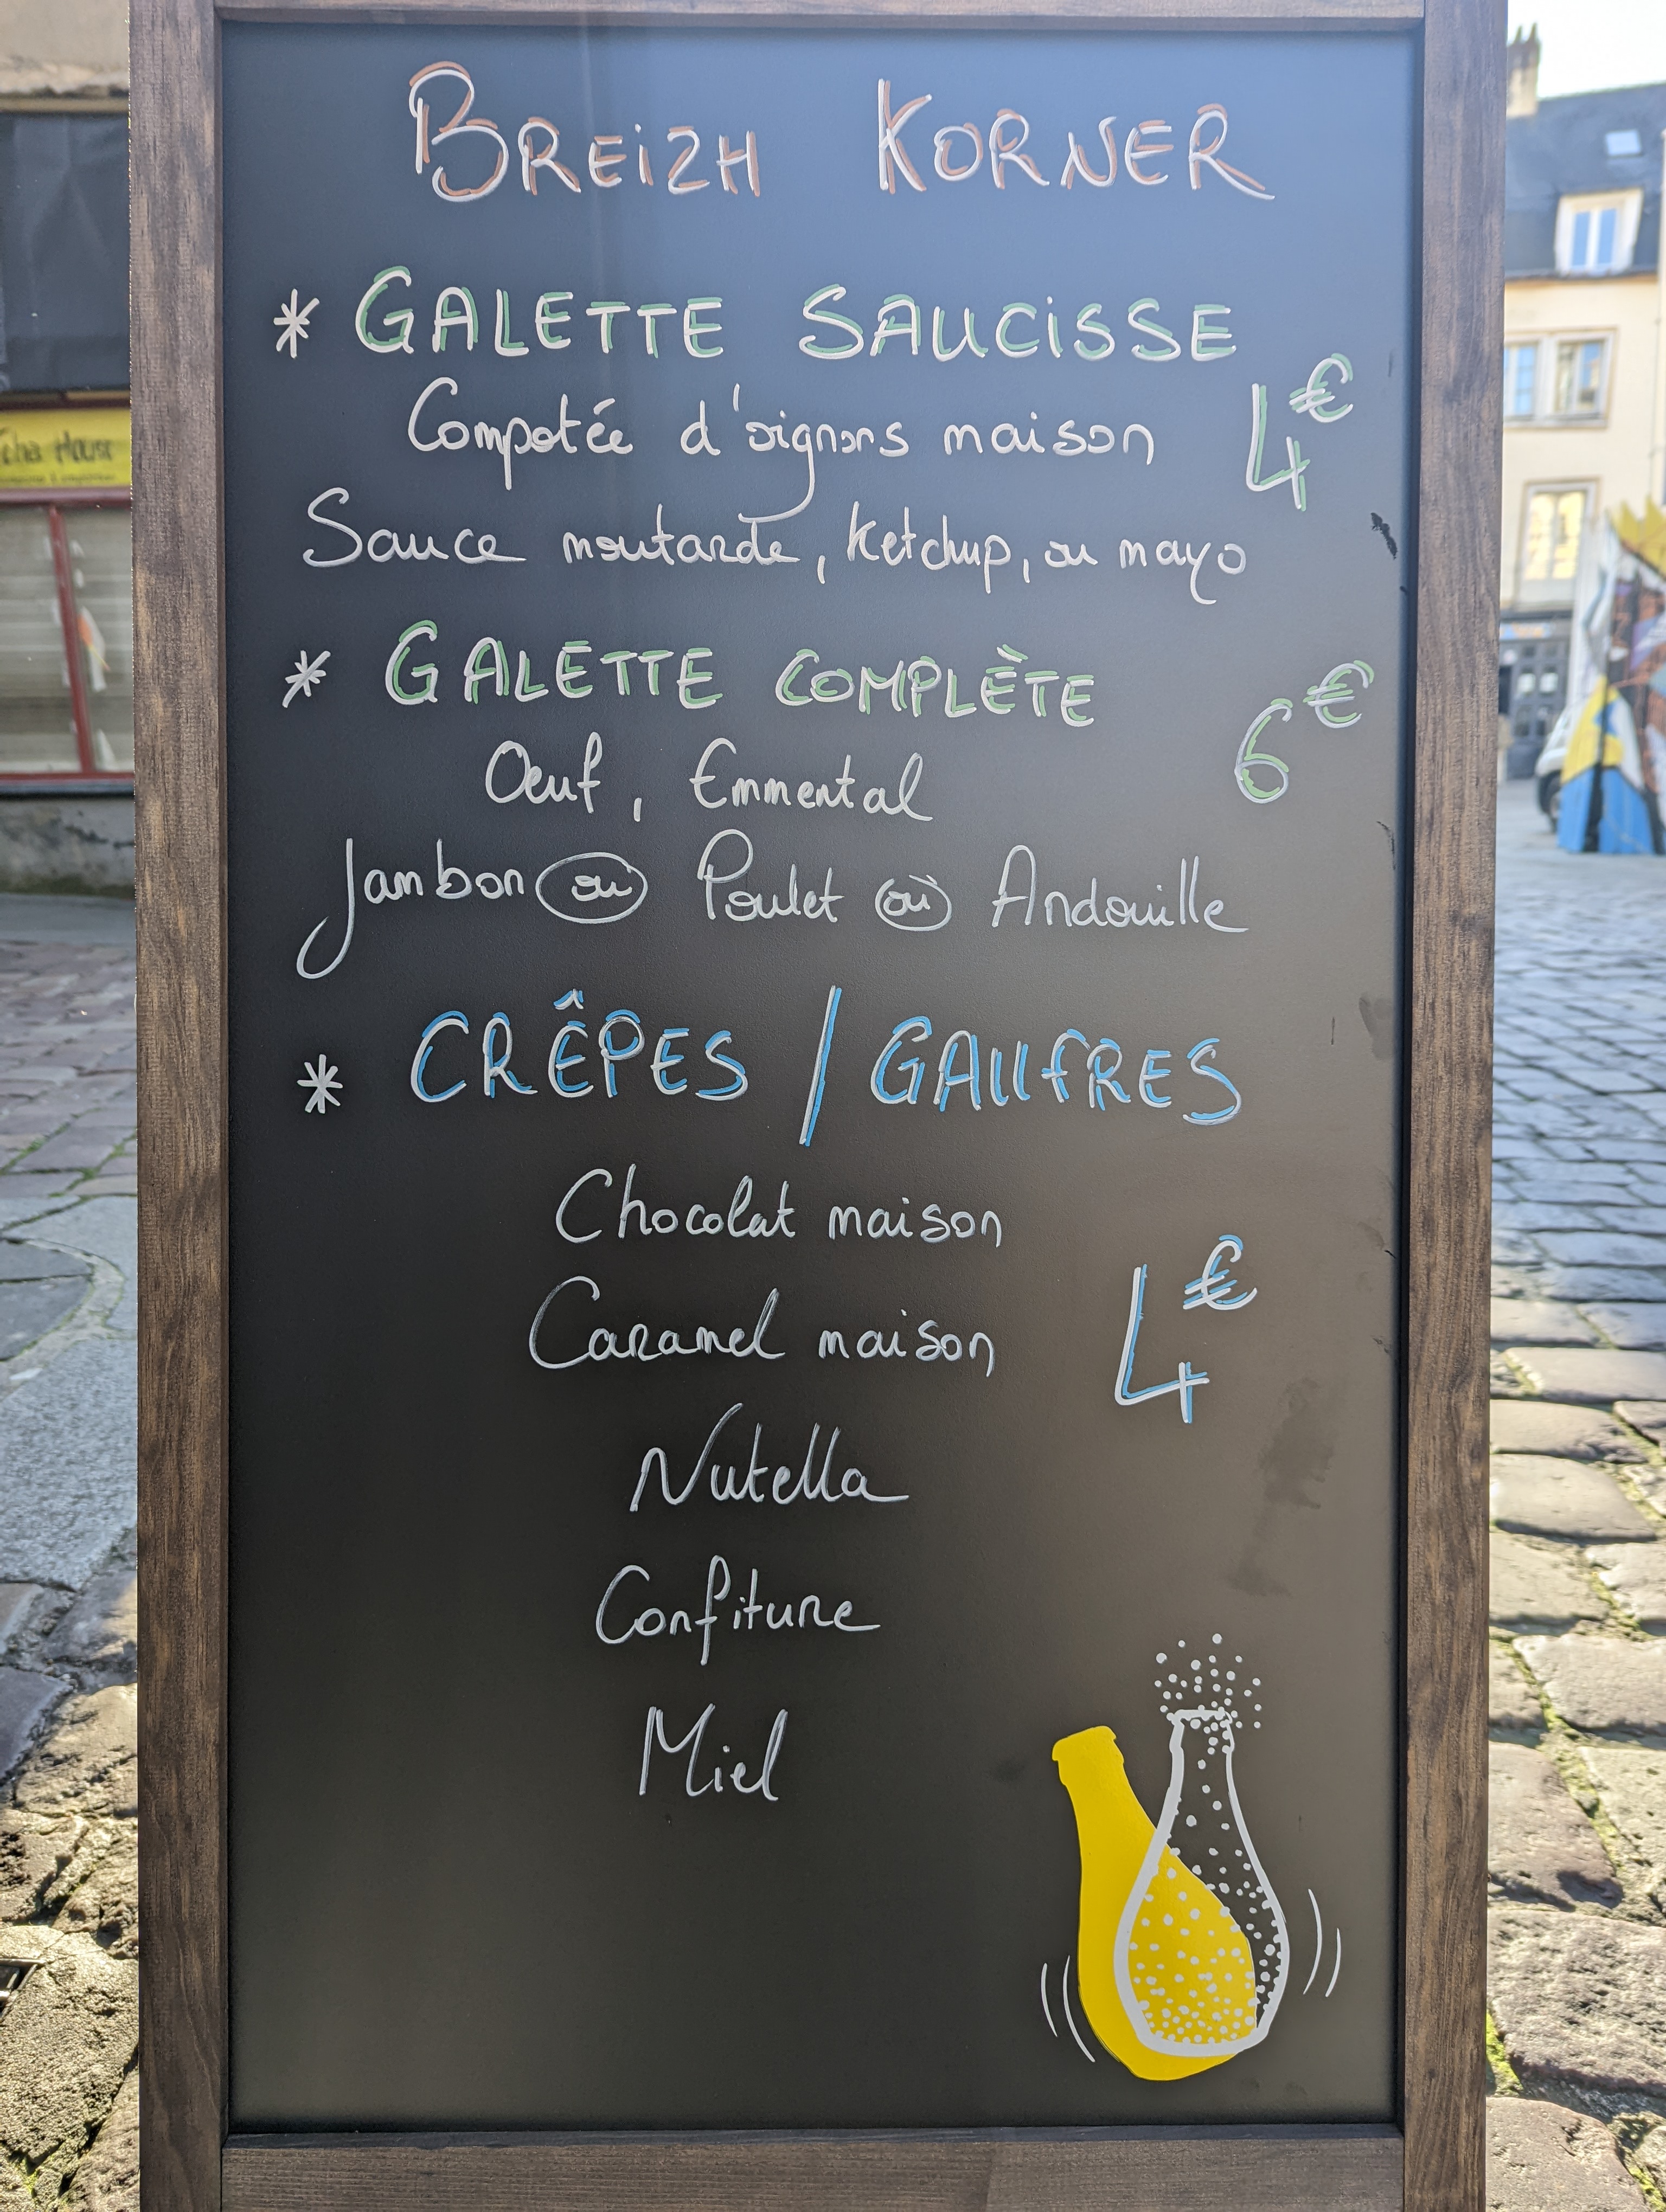 BREIZH KORNER
* GALETTE SAUCISSE
Compotée d'oignons maison
4€
Sauce moutarde, ketchup, ou mayo
* GALETTE COMPLÈTE
6€
Oeuf, Emmental
Jambon ou Poulet où Andouille
* CRÊPES / GAUFRES
Chocolat maison
Caramel maison
4€
Nutella
Confiture
Miel
House